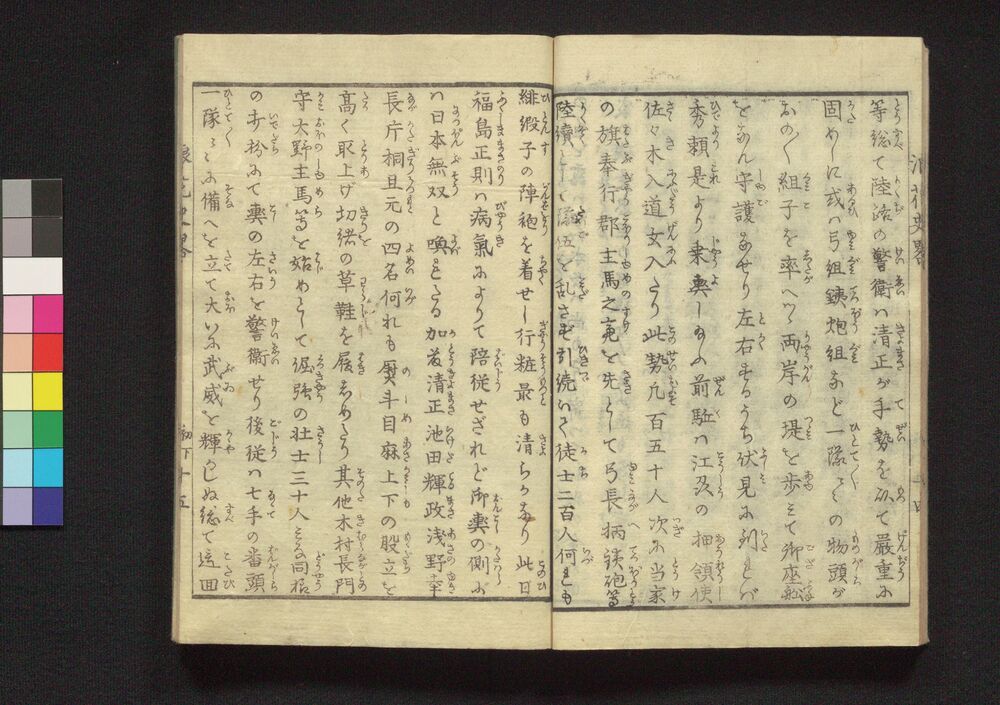 等総て陸路の警衛ハ清正が手勢を以て厳重に
固めしに或ハ弓組銕炮組など一隊〻〻の物頭が
おの〳〵組子を率へツヽ両岸の堤を歩ミて御座船
をなん守護なせり左右するうち伏見に到れバ
秀頼是より乗輿しめふ前駈ハ江汲の押領使
佐々木入道女入たり此勢凡百五十人次に当家
の旗奉行郡主馬之亮を先として弓長柄銕砲等
陸続として隊伍を乱さず引続いて徒士二百人何れも
緋緞子の陣袍を着せし行粧最も清らかなり此日
福島正則ハ病氣によりて陪従せざれど御輿の側に
ハ日本無双と喚れたる加藤清正池田輝政浅野幸
長片桐且元の四名何れも熨斗目麻上下の股立を
高く取上げ切緒の草鞋を履しめたり其他木村長門
守大野主馬等を始めとして倔強の壮士三十人ミな同裃
の出粉にて輿の左右を警衛せり後従ハ七手の番頭
一隊〻〻に備へを立て大いに武威を輝かしぬ総て這回
浪花史略
初下十五